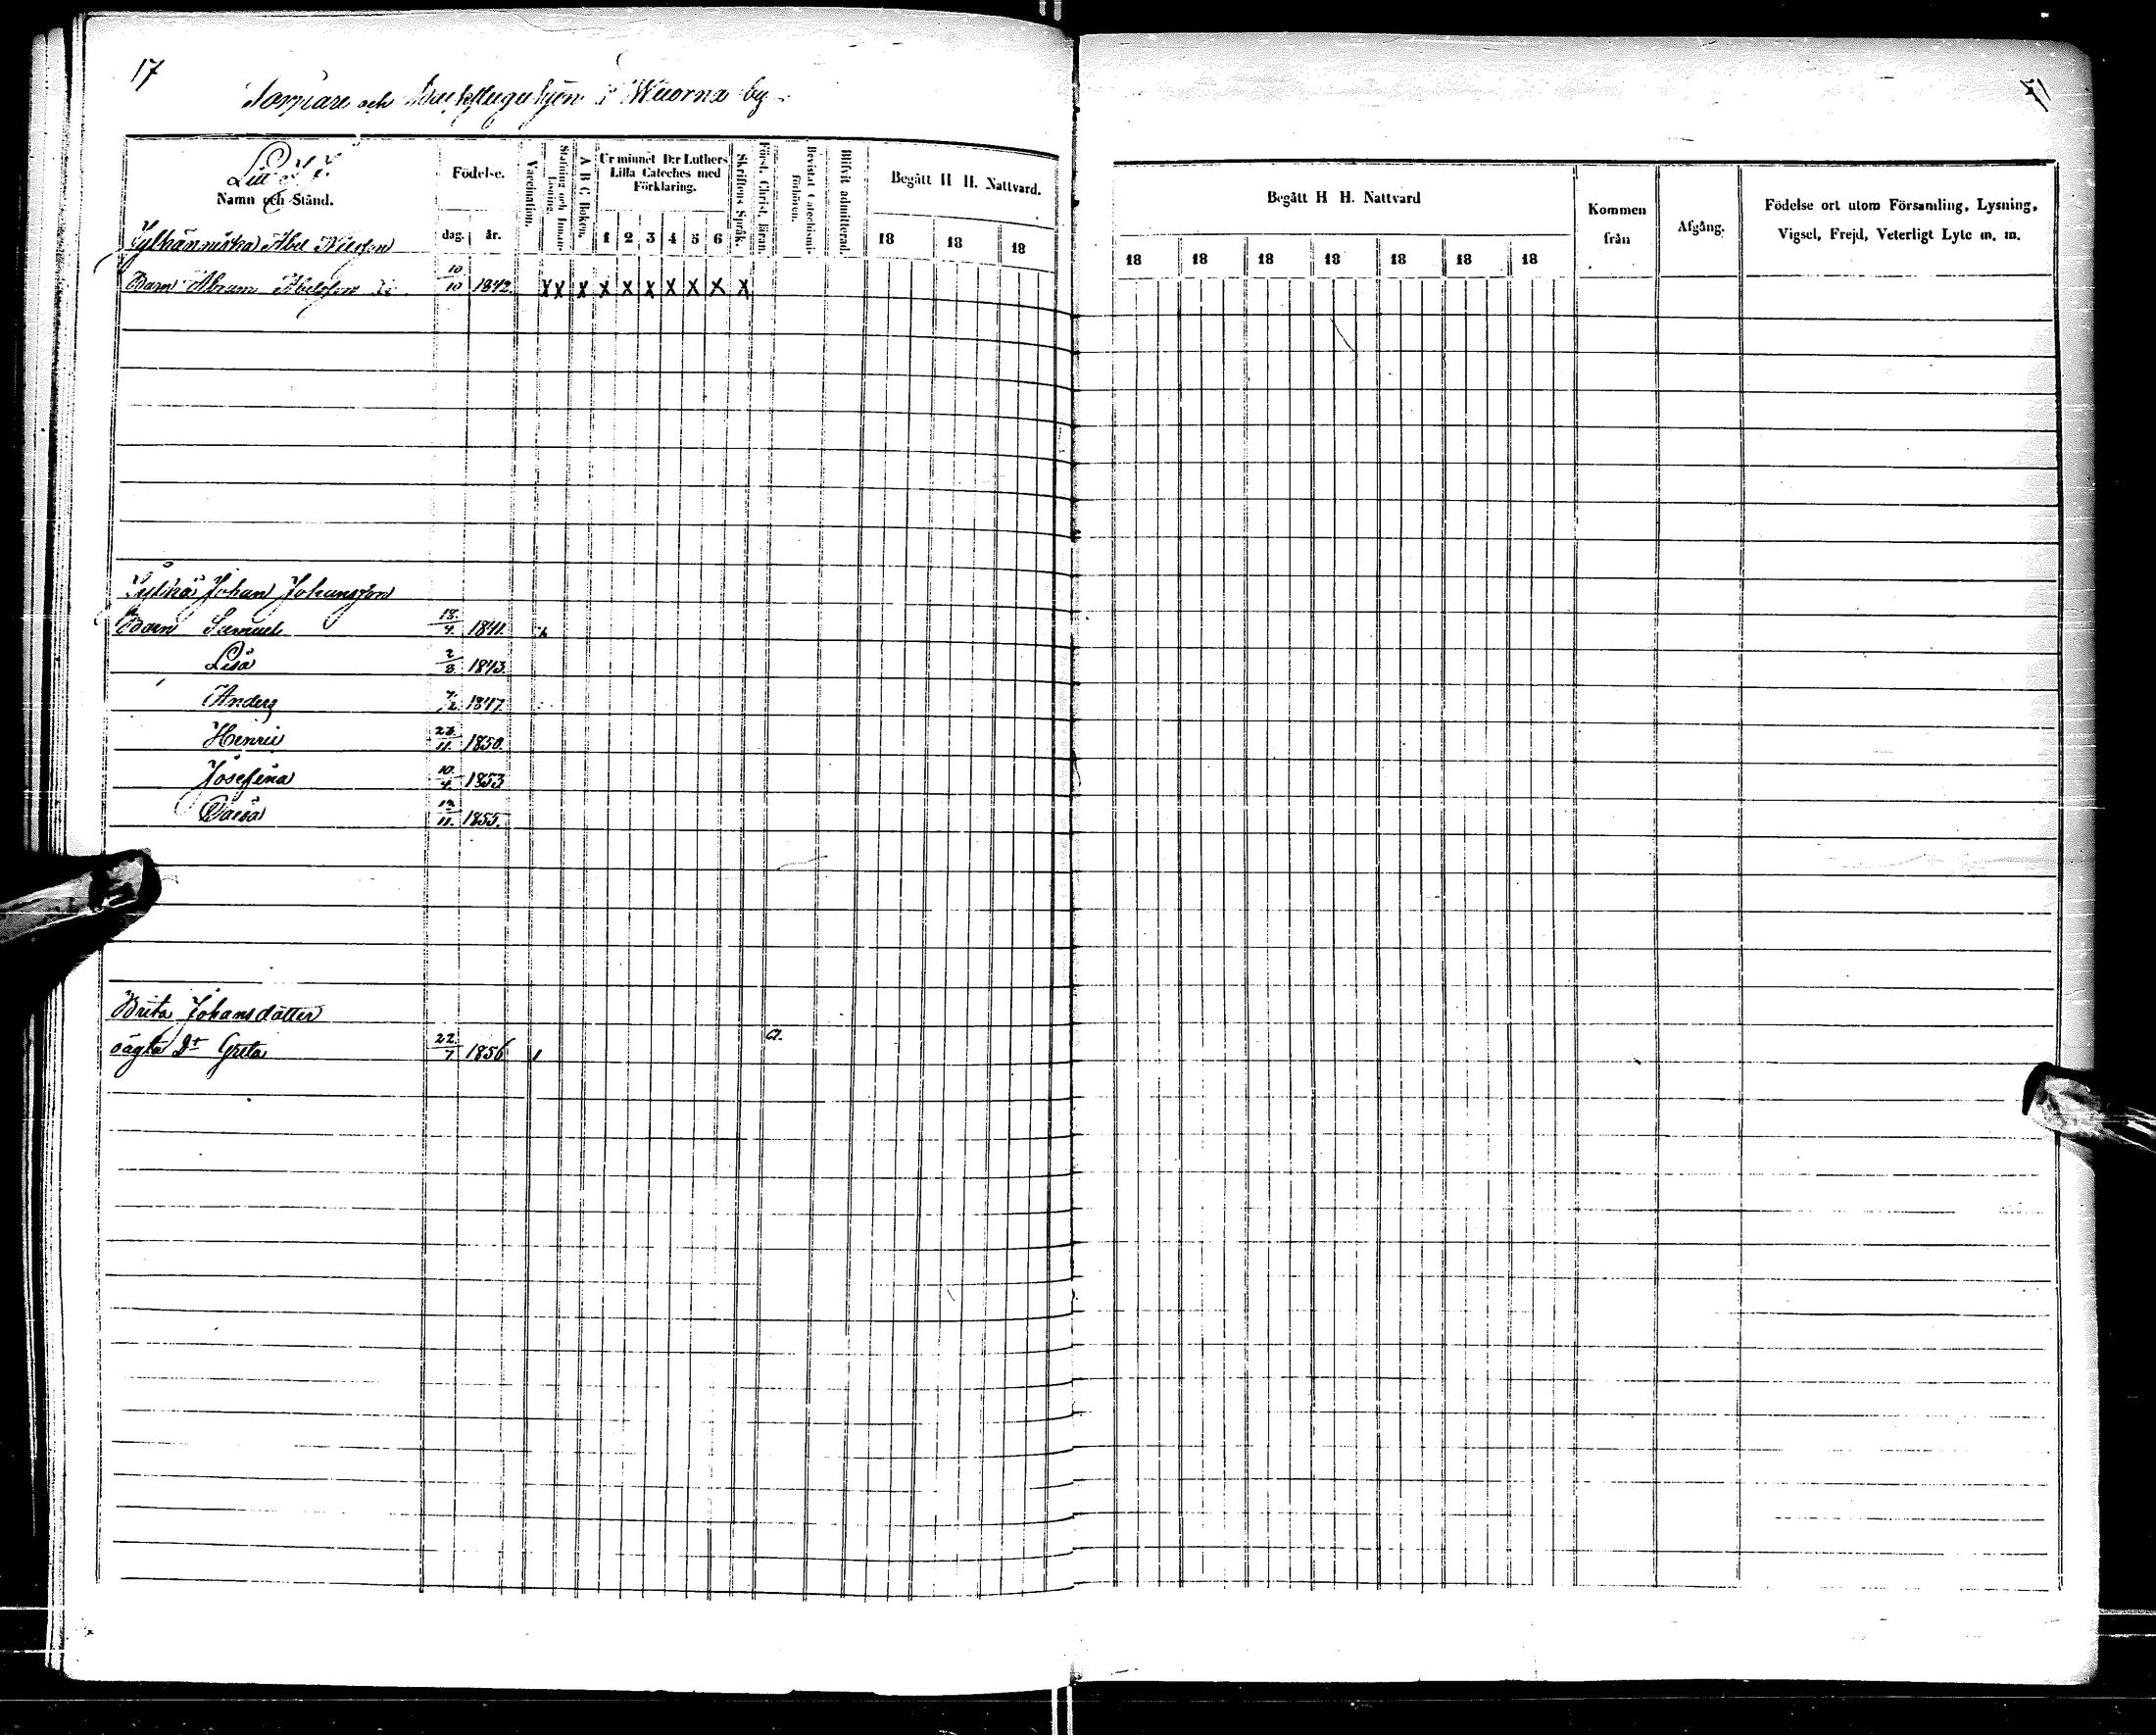 17
Torpare och i Wuorna by
71
Litt. Y.
Namn och Stånd.
Födelse.
dag. år.
Vaccination.
Stafning och Innanläsning.
A B C Boken.
Ur minnet D:r Luthers Lilla Cateches med Förklaring.
1 2 3 4 5 6
Skriftens Språk.
Först. Christ. läran.
Bevistat Catechismi-förhören.
Blifvit admitterad.
Begått H H. Nattvard.
18 18 18
Begått H H. Nattvard
18 18 18 18 18 18 18
Kommen från
Afgång.
Födelse ort utom Församling, Lysning, Vigsel, Frejd, Veterligt Lyte m. m.
Abel
Barn Abram Abelsson 10/10 1842. X X X X X X X X X X
Johan Johansson
Barn Samuel 18/4. 1841.
Lisa 2/8. 1843.
Anders 1847.
Henric 11. 1850.
Josefina 10/4. 1853
Caisa 12/11. 1855.
Brita Johansdotter
oägta Dr Greta 22/7 1856